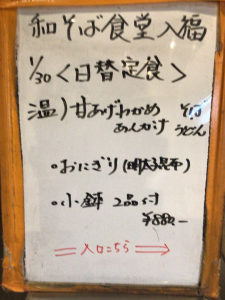 和そば食堂入福
1/30<日替定食>
温)甘あげわかめ そば
あんかけ うどん
・おにぎり(明太子昆布)
・小鉢 2品付
¥880-
入口こちら